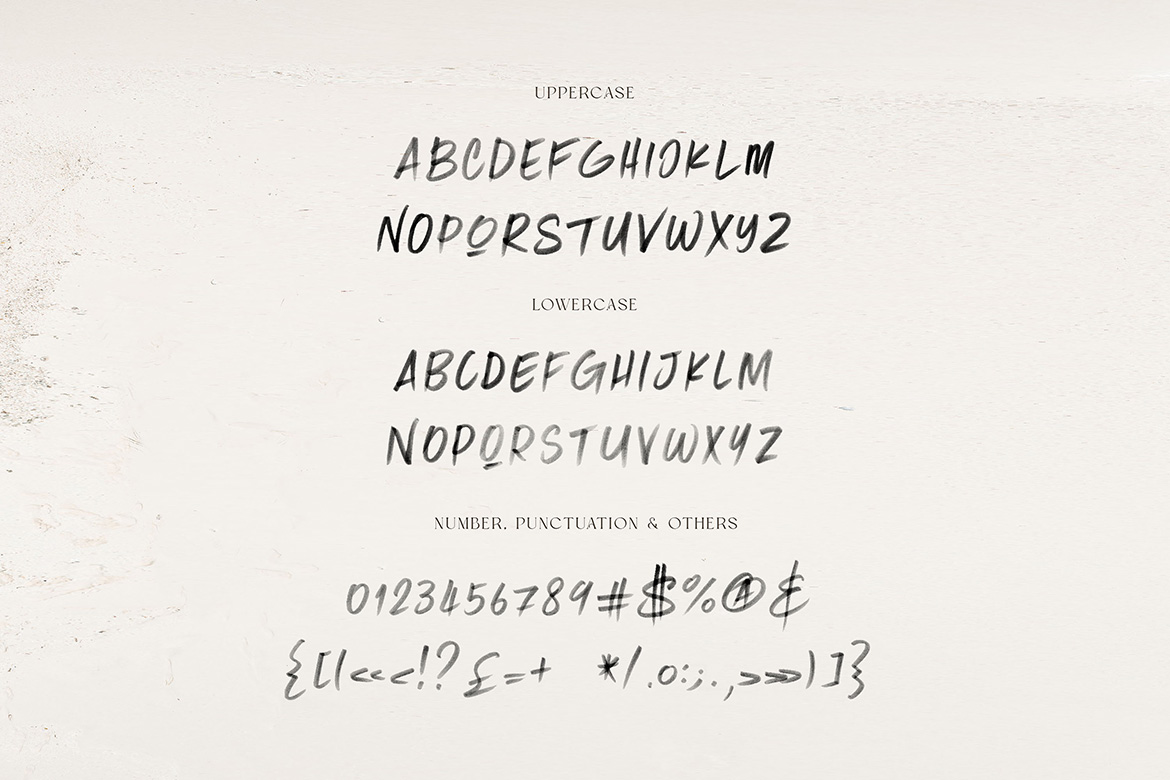 UPPERCASE
ABCDEFGHIJKLM
NOPQRSTUVWXYZ
LOWERCASE
ABCDEFGHIJKLM
NOPQRSTUVWXYZ
NUMBER, PUNCTUATION & OTHERS
0123456789#$%@&
{[(«<!?£=+ */.o:;.,>»)]}